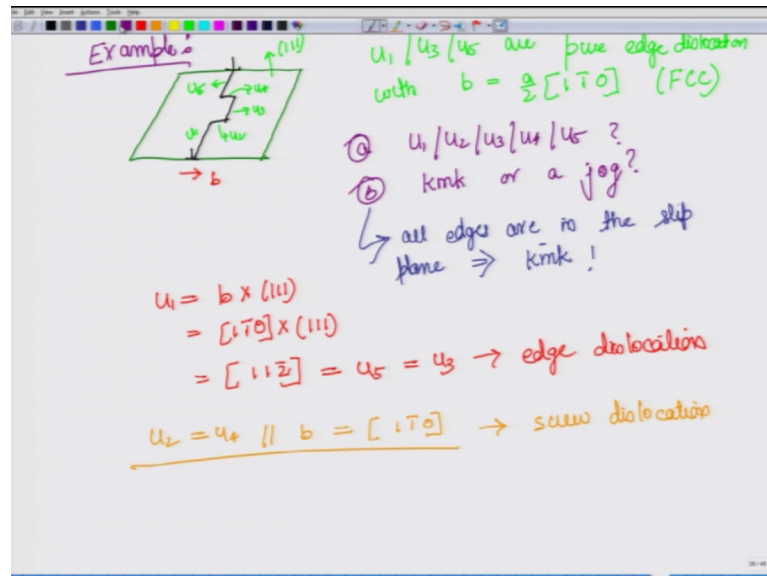 File Edit View Insert Actions Tools Help
Example:
(111)
u5
u4
u3
u2
→ b
u1/u3/u5 are pure edge dislocation
with b = a/2 [1 1̄ 0] (FCC)
(a) u1/u2/u3/u4/u5 ?
(b) kink or a jog?
↳ all edges are in the slip
plane ⇒ kink !
u1 = b × (111)
= [1 1̄ 0] × (111)
= [1 1 2̄] = u5 = u3 → edge dislocations
u2 = u4 // b = [1 1̄ 0] → screw dislocations